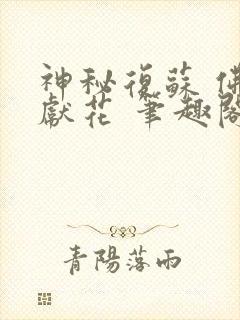 神秘復蘇 佛
獻花 筆趣閣
青陽落雨